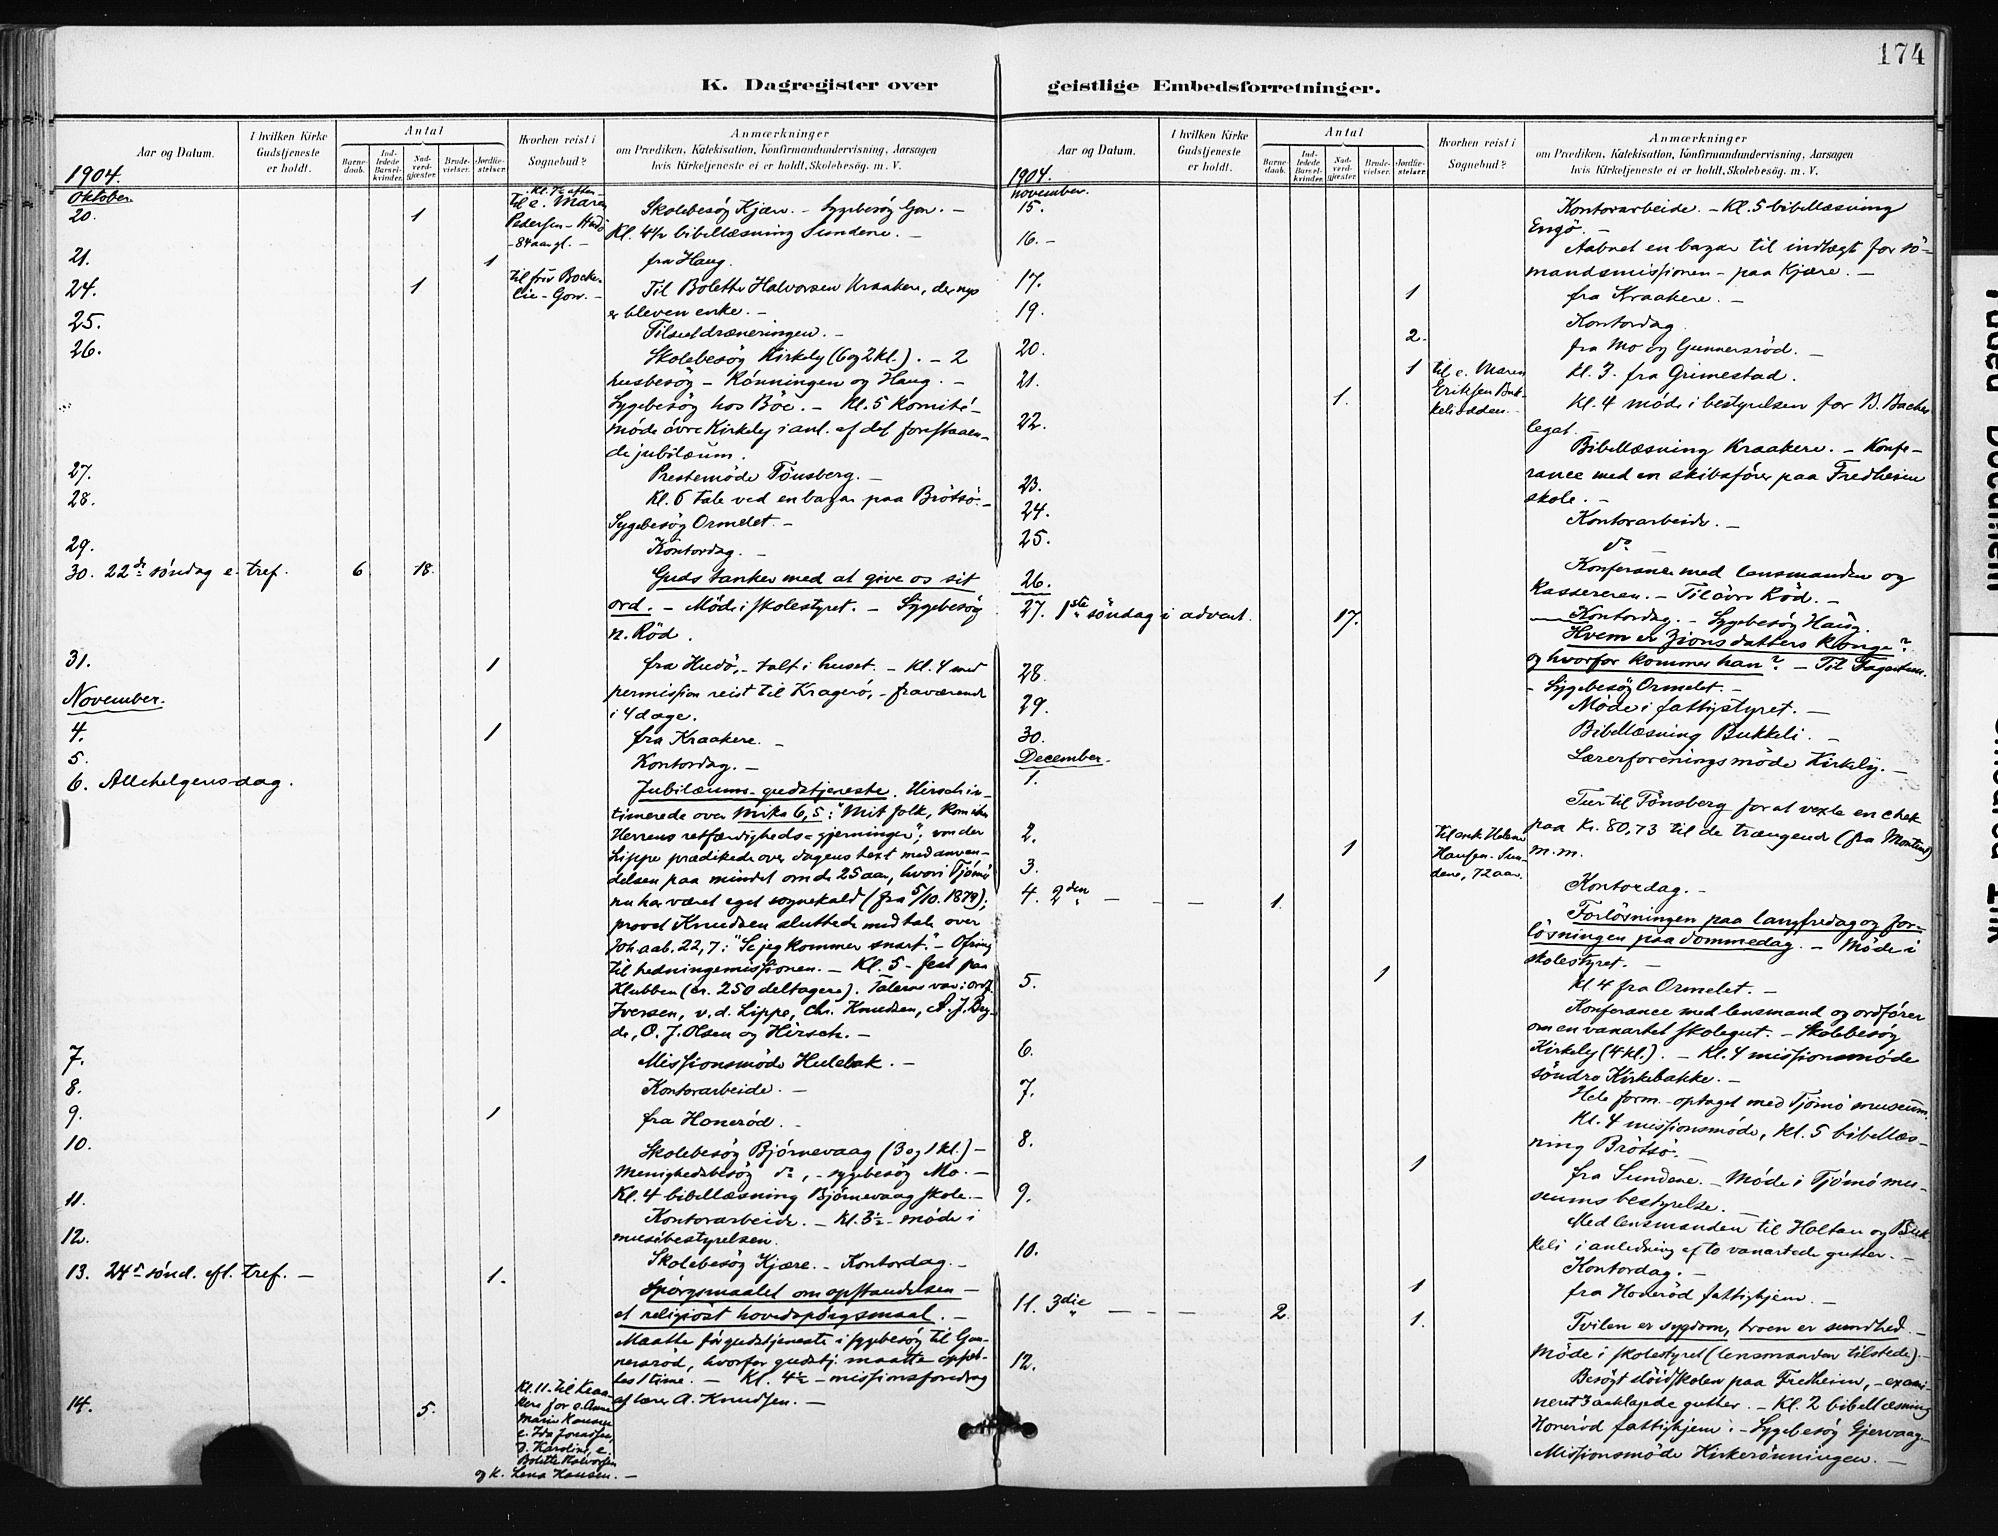 174
K. Dagregister over geistlige Embedsforretninger.
Aar og Datum.
I hvilken Kirke Gudstjeneste er holdt.
Antal
Barnedaab.
Indledede Barselkvinder.
Nadverdgjæster.
Brudevielser.
Jordfæstelser.
Hvorhen reist i Sognebud?
Anmærkninger
om Prædiken, Katekisation, Konfirmandundervisning, Aarsagen
hvis Kirketjeneste ei er holdt, Skolebesøg. m. V.
1904.
Oktober.
20. 1 Til e. Maren Pedersen - Hudö - 84 aar gl. - Skolebesög Kjære. - Sygebesög Gon. -
Kl. 4½ bibellæsning Sundene. -
21. 1 fra Haug.
24. 1 Til Bolette Halvorsen Kraakere, der nys
er bleven enke. -
25. Tilseldræneringen. -
26. Skolebesög Kirkely (6 og 2 kl.). - 2
husbesög - Rönningen og Haug. -
Sygebesög hos Böe. - Kl. 5 komité-
möde övre Kirkely i anl. af det forestaaen-
de jubilæum.
27. Prestemöde Tönsberg. -
28. Kl. 6 tale ved en bazar paa Brötsö. -
Sygebesög Ormelet. -
29. Kontordag. -
30. 22de söndag e. tref. 6 18. Guds tanker med at give os sit
ord. - Möde i skolestyret. - Sygebesög
n. Röd.
31. 1 fra Hudö, - talt i huset. - Kl. 4 med
permission reist til Kragerö, - fraværende
i 4 dage.
November.
4. 1 fra Kraakere. -
5. Kontordag. -
6. Allehelgensdag. Jubilæums-gudstjeneste. Hirsch in-
timerede over Mika 6,5: "Mit folk, kom ihu
Herrens retfærdigheds-gjerninger"; von der
Lippe prædikede over dagens text med anven-
delsen paa mindet om de 25 aar, hvori Tjömö
nu har været eget sognekald (fra 5/10. 1879);
provst Knudsen sluttede med tale over
Joh. aab. 22,7: "Se jeg kommer snart." - Ofring
til hedningemissionen. - Kl. 5 - fest paa
Klubben (cr. 250 deltagere). Talerne var: ordf.
Iversen, v. d. Lippe, Chr. Knudsen, A. J. Bry-
de, O. J. Olsen og Hirsch. -
7. Missionsmöde Hulebak. -
8. Kontorarbeide. -
9. 1 fra Honeröd. -
10. Skolebesög Bjørnevaag (3 og 1 kl.) -
Menighedsbesög do, - sygebesög Mo. -
Kl. 4 bibellæsning Bjørnevaag skole. -
11. Kontorarbeide. - Kl. 3½ - möde i
musibestyrelsen.
12. Skolebesög Kjære. - Kontordag. -
13. 24de sönd. eft. tref. - 1. Spörgsmaalet om opstandelsen -
et religiöst hovedspörgsmaal. -
Maatte för gudstjeneste i sygebesög til Gun-
neröd, hvorfor gudstj. maatte opsæt-
tes 1 time. - Kl. 4½ - missionsforedrag
af lærer A. Knudsen. -
14. 5. Kl. 11. til Kraa-
kere for e. Anne
Marie Hansen
e. Ida Jonassen,
J. Karoline, e.
Bolette Halvorsen
og k. Lena Hansen. -
Aar og Datum.
I hvilken Kirke Gudstjeneste er holdt.
Antal
Barnedaab.
Indledede Barselkvinder.
Nadverdgjæster.
Brudevielser.
Jordfæstelser.
Hvorhen reist i Sognebud?
Anmærkninger
om Prædiken, Katekisation, Konfirmandundervisning, Aarsagen
hvis Kirketjeneste ei er holdt, Skolebesøg. m. V.
1904.
November.
15. Kontorarbeide. - Kl. 5 bibellæsning
Engö. -
16. - Aabnet en bazar til indtægt for sö-
mandsmissionen - paa Kjære. -
17. 1 fra Kraakere. -
19. Kontordag.
20. 2. fra Mo og Gunnersröd. -
21. 1 kl. 3. fra Grimestad.
1. til e. Maren Eriksen Bukkelisodden. - Kl. 4 möde i bestyrelsen for B. Baches
legat. -
22. Bibellæsning Kraakere. - Konfe-
rance med en skibsförer paa Fredheim
skole. -
23. Kontorarbeide. -
24. do
25. Konferance med lensmanden og
kassereren. - Til övre Röd. -
26. Kontordag. - Sygebesög Haug.
27. 1ste söndag i advent. 17. Hvem er Zions datters konge?
og hvorfor kommer han? - Til Fagertun.
- Sygebesög Ormelet. -
28. Möde i fattigstyret. -
29. Bibellæsning Bukkeli. -
30. Lærerforeningsmöde Kirkely. -
December.
1. Tur til Tönsberg for at vexle en chek
paa Kr. 80,73 til de trængende (fra Montana)
m. m.
2. 1 Til enk. Helene Hansen. Sundene, 72 aar.
3. Kontordag. -
4. 2den - - - 1. Forlösningen paa langfredag og for-
lösningen paa dommedag. - Möde i
skolestyret. -
5. 1 kl 4 fra Ormelet. -
Konferance med lensmand og ordförer
om en vanartet skolegut. - Skolebesög
6. Kirkely (4 kl.). - Kl. 4 missionsmöde
söndre Kirkebakke. -
7. Hele form. optaget med Tjömö museum.
Kl. 4 missionsmöde, kl. 5 bibellæs-
ning Brötsö. -
8. 1 fra Sundene. - Möde i Tjömö mu-
seums bestyrelse. -
9. Med lensmanden til Holtan og Buk-
keli i anledning af to vanartede gutter. -
10. Kontordag. -
1 fra Honeröd fattighjem. -
11. 3die - - - 2. 1. Tvilen er sygdom, troen er sundhed. -
Möde i skolestyret (lensmanden tilstede). -
12. Besögt slöidskolen paa Fredheim, - exami-
neret 3 anklagede gutter. - Kl. 2 bibellæsning
Honeröd fattighjem. - Sygebesög Gjervaag. -
Missionsmöde Kirkerönningen. -